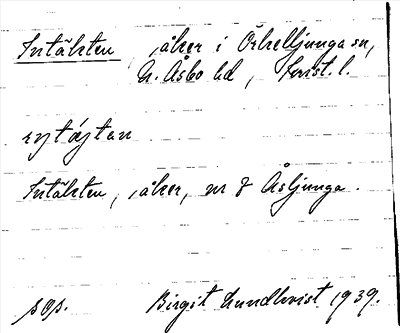 Intäkten, åker i Örkelljunga sn,
N. Åsbo hd, Krist. l.
Intäkten, åker, nr 8 Åsljunga.
sop.
Birgit Lundkvist 1939.